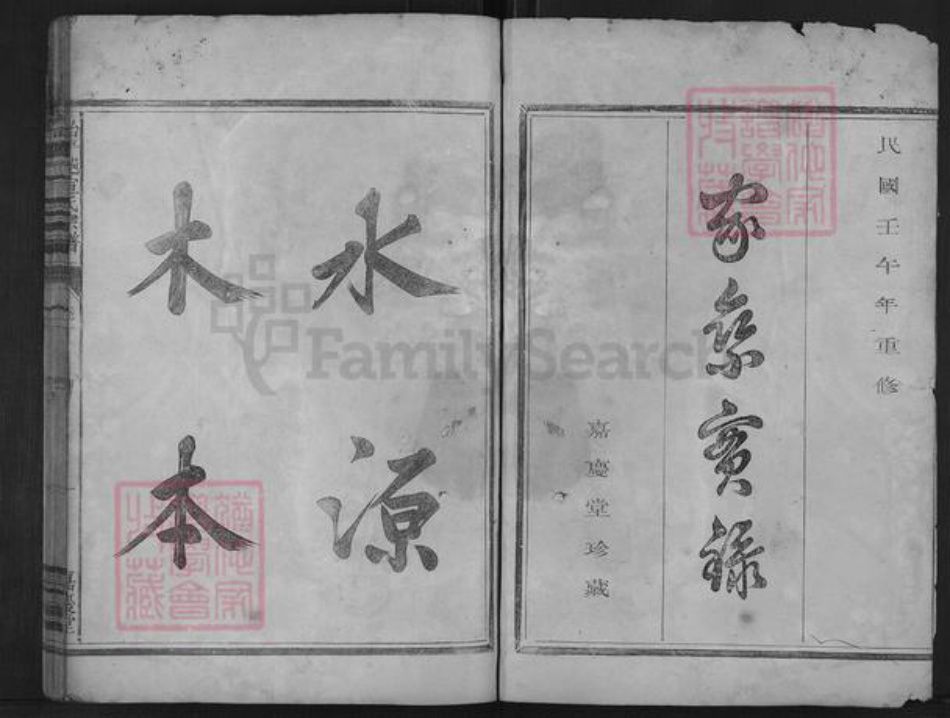 民國壬午年重修
家乘實錄
嘉慶堂珍藏
水源
木本
FamilySearch